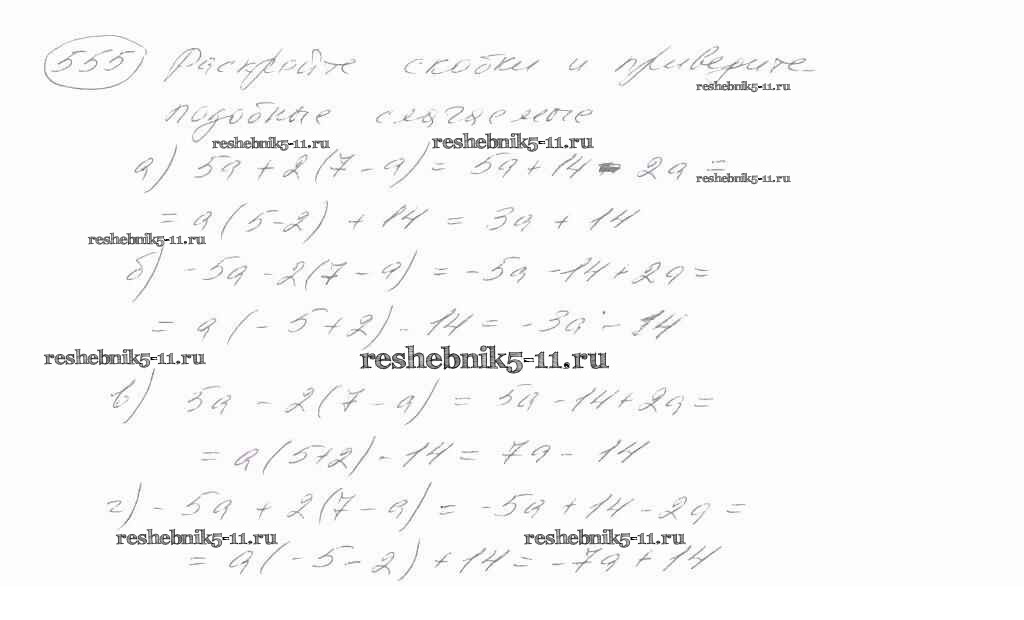 555) Раскройте скобки и приведите
reshebnik5-11.ru
подобные слагаемые
reshebnik5-11.ru reshebnik5-11.ru
а) 5a + 2(7 - a) = 5a + 14 - 2a =
reshebnik5-11.ru
= a(5-2) + 14 = 3a + 14
reshebnik5-11.ru
б) -5a - 2(7 - a) = -5a - 14 + 2a =
= a(-5+2) - 14 = -3a - 14
reshebnik5-11.ru reshebnik5-11.ru
в) 5a - 2(7 - a) = 5a - 14 + 2a =
= a(5+2) - 14 = 7a - 14
г) -5a + 2(7 - a) = -5a + 14 - 2a =
reshebnik5-11.ru reshebnik5-11.ru
= a(-5-2) + 14 = -7a + 14